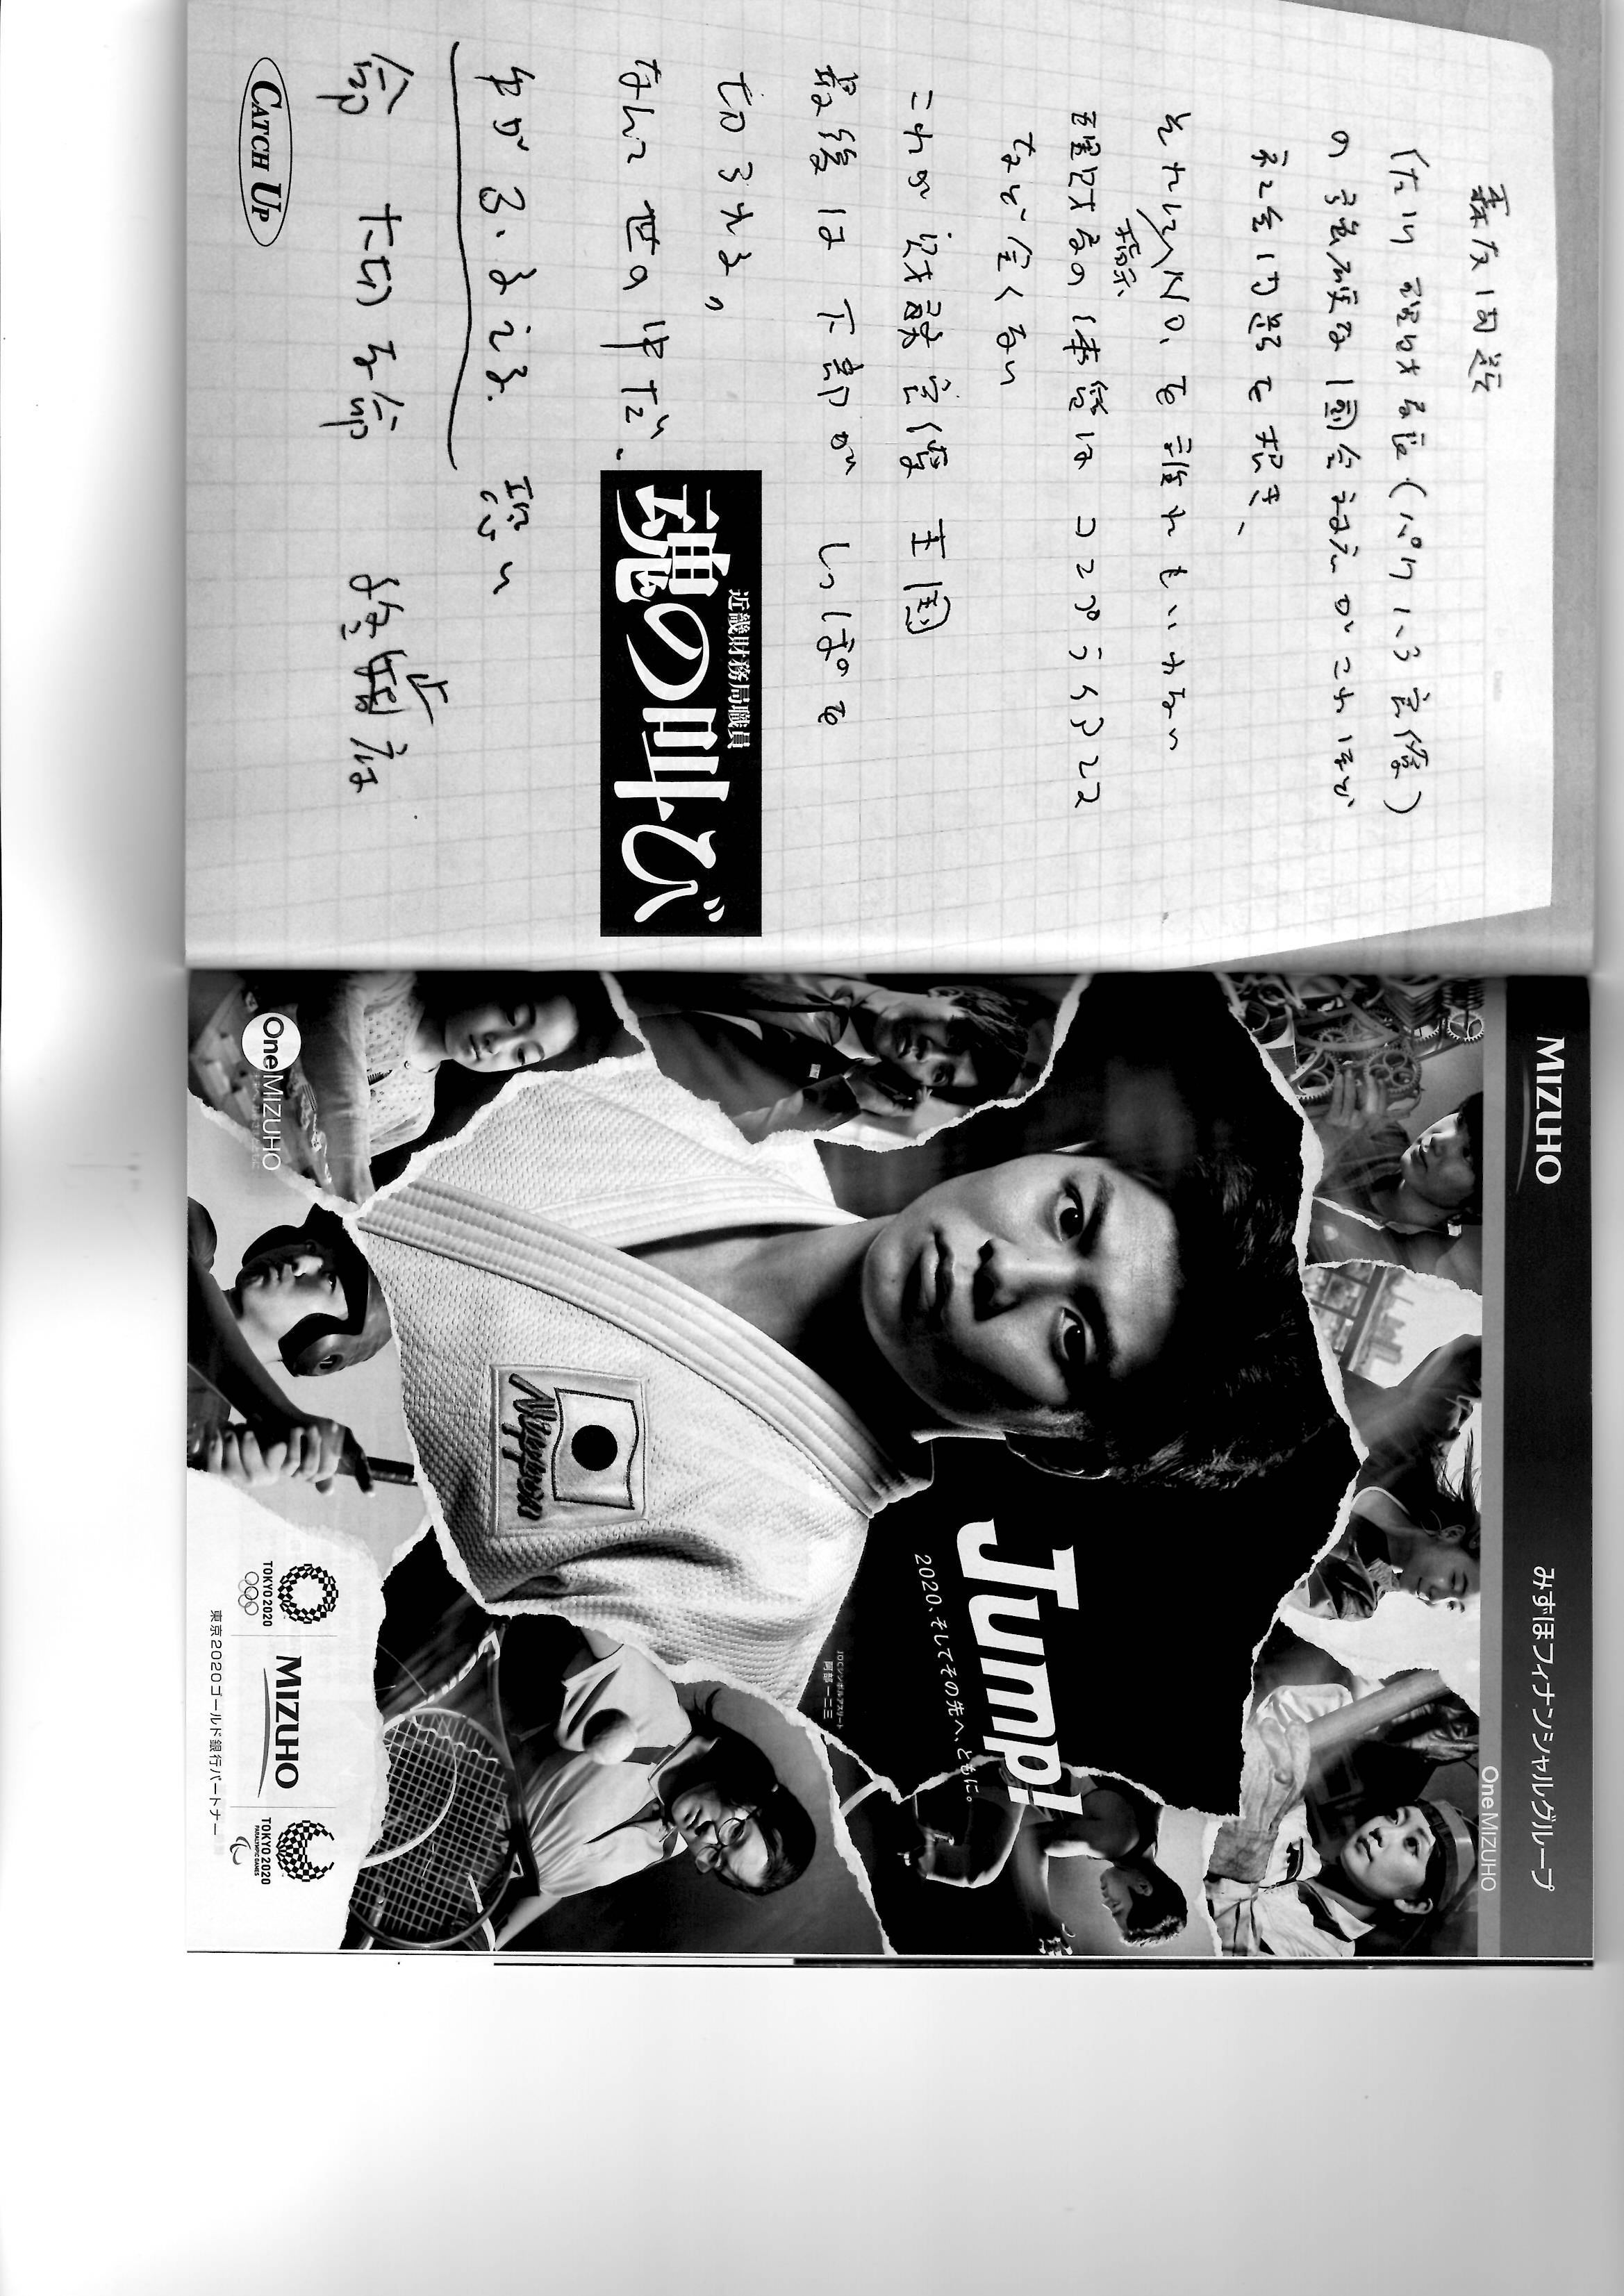 森友問題
佐川理財局長(パワハラ官僚)
の強硬な国会対応がこれほど
社会問題を招き、
それにNO.を誰れもいわない
指示
理財局の体質はコンプライアンス
など全くない
これが財務官僚王国
最後は下部がしっぽを
切られる。
なんて世の中だ、
手がふるえる、恐い
命 大切な命 終止府
近畿財務局職員
魂の叫び
CATCH UP
MIZUHO
みずほフィナンシャルグループ
One MIZUHO
Jump!
2020、そしてその先へ、ともに。
JOCシンボルアスリート
阿部 一二三
Nippon
One MIZUHO
TOKYO 2020
MIZUHO
TOKYO 2020
PARALYMPIC GAMES
東京2020ゴールド銀行パートナー